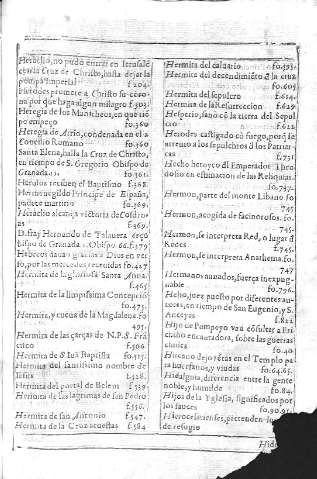 Heraclio, no pudo entrar en Ierusalẽ
cõ la Cruz de Christo, hasta dejar la
pompa Imperial f.204.
Herodes promete à Christo su coro-
na por que haga algun milagro f.303.
Heregia de los Maniqueos, en que tiẽ
po empeço fo.360
Heregia de Arrio, condenada en el
Concilio Romano fo.360
Santa Elena, halla la Cruz de Christo,
en tiempo de S. Gregorio Obispo de
Granada fo.361.
Herulos reciben el Baptismo f.368.
Hermenegildo Principe de España,
padece martirio fo.369.
Heraclio alcança victoria de Cosdroas
f.369.
D. fray Hernando de Talavera arço
bispo de Granada. Obispo 66. f.379
Hebreos davan gracias à Dios en ver
so, por las mercedes recevidas fo.427
Hermita de la gloriosa Santa Anna.
f.465
Hermita de la limpissima Concepciõ
fo.473.
Hermita, y cueva de la Magdalena fo
495.
Hermita de las çarças de N.P.S. Frã
cisco f.506.
Hermita de S. Iuã Baptista fo.515.
Hermita del santissimo nombre de
Iesus f.528.
Hermita del portal de Belem f.539.
Hermita de las lagrimas de san Pedro
f.556.
Hermita de san Antonio f.547.
Hermita de la Cruz acuestas f.584
Hermita del calvario fo.593.
Hermita del decendimiẽto d la cruz
fo.605
Hermita del sepulcro f.614.
Hermita de la Resurreccion f.629
Hesperio, sanò cõ la tierra del Sepul
cro f.622
Herodes castigado cõ fuego, porq̃ se
atreuio a los sepulchros d los Patriar-
cas f.731
Hecho heroyco dl Emperador
dosio en estimacion de las Reliquias.
fo.732.
Hermon, parte del monte Libano fo
745
Hermon, acogida de facinorosos. fo.
745.
Hermon, se interpreta Red, o lugar d
Redes f.745.
Hermon, se interpreta Anathema. fo.
747
Hermanos aunados, fuerça inexpug-
nable fo.796.
Hecho, juez pueblo por diferentes
en tiempo de San Eugenio, y S.
Aniceto f.822
Hijo de Pompeyo va à cõsultar a Eri
ctho encantadora, sobre las guerras
civiles fo.40.
Hircano dejo rẽtas en el Templo pa
ra huerfanos, y viudas fo.64.65.
Hidalguia, diferencia entre la gente
noble, y humilde fo.84.
Hijos de la Yglesia, significados por
los sauces fo.90.91.
Hierosolimitanos, pretenden
de refugio
Hido